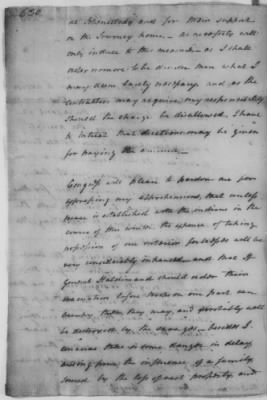 630
at Schenectady and for their support
on the Journey home — as necessity will
only induce to the measure as I shall
order no more to be done than what I
may deem barely necessary and as the
may require my responsibility
should the charge be disallowed, I have
to intreat that directions may be given
for paying the amount —
Congress will please to pardon me for
expressing my apprehensions that unless
peace is established with the indians in the
course of this winter the expence of taking
possession of our exterior fortresses will be
very considerably inhanced — and that if
General Haldimand should order their
evacuation before troops on our part can
occupy them they may, and probably will
be destroyed by the savages — besides I
conceive there is some danger in delay
arising from the influence of a family
soured by the loss of vast property, and